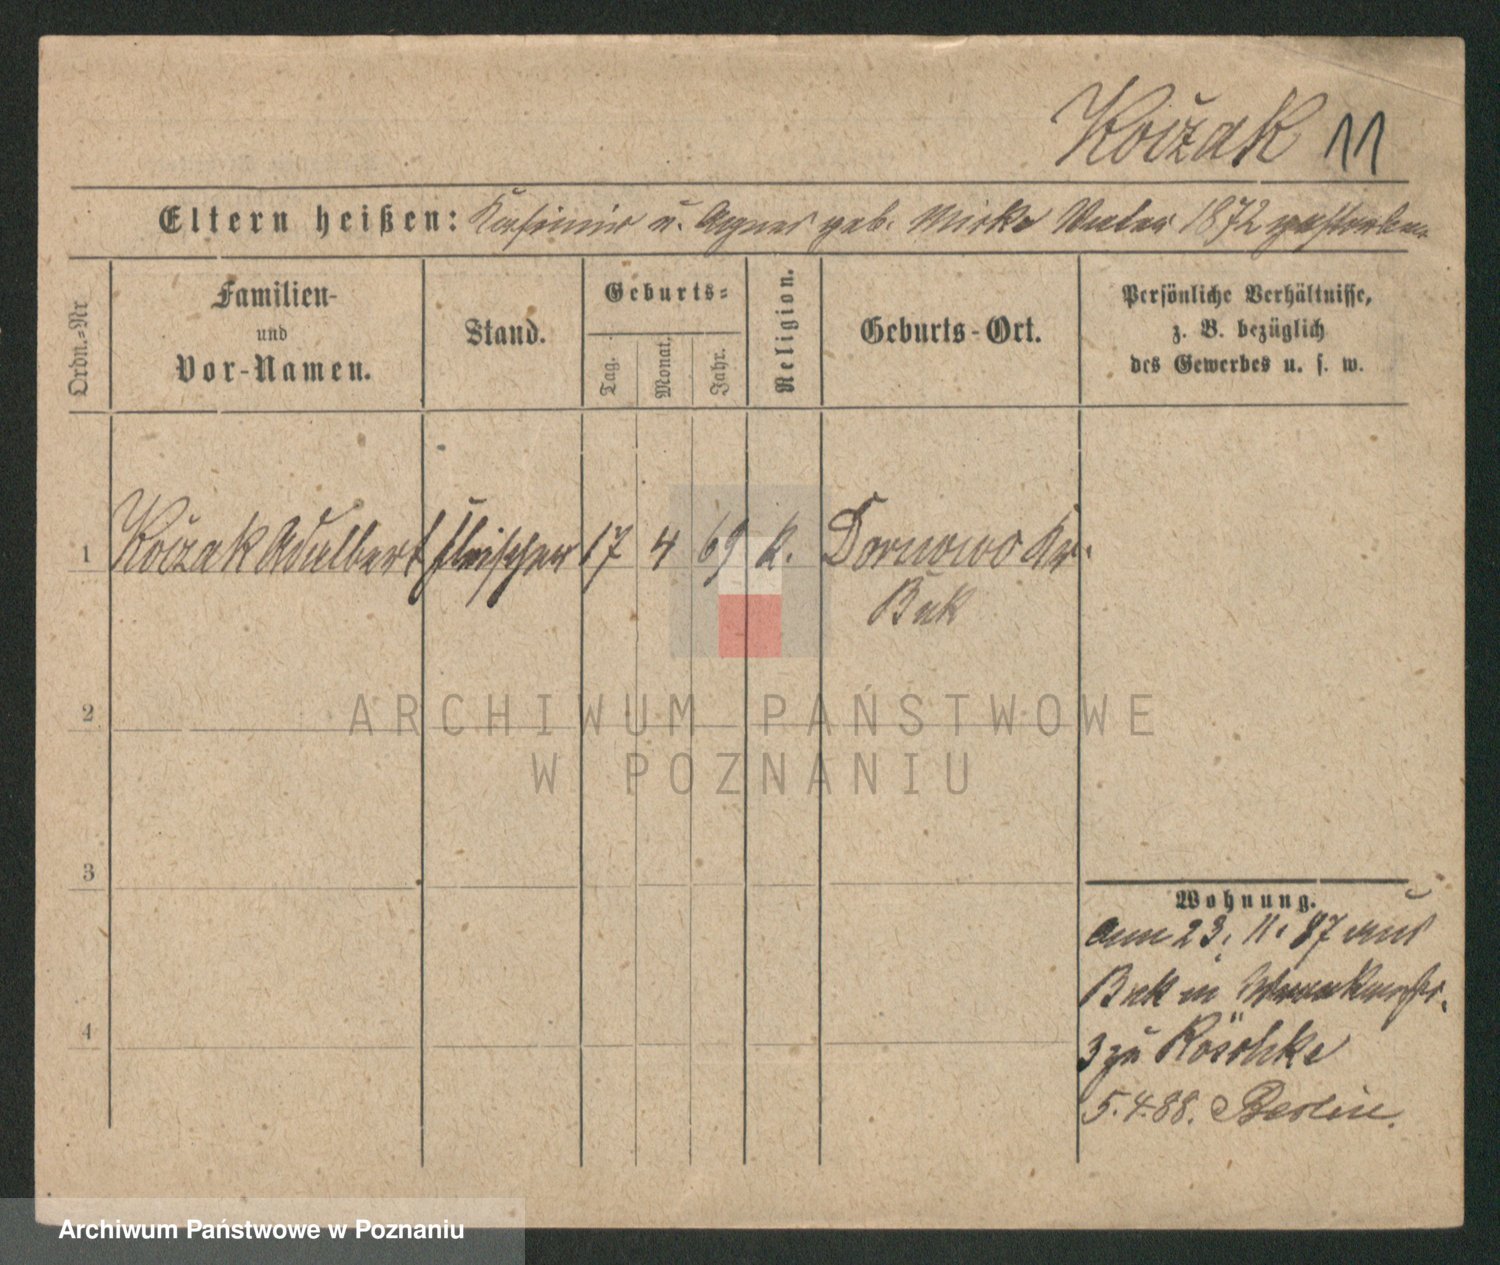 Koiżak 11
Eltern heißen: Kasimir u. Agnes geb. Mirke Vater 1872 gestorben
Ordn.-Nr
Familien-
und
Vor-Namen.
Stand.
Geburts-
Tag.
Monat.
Jahr.
Religion.
Geburts-Ort.
Persönliche Verhältnisse,
z. B. bezüglich
des Gewerbes u. s. w.
1 Koiżak Adalbert Fleischer 17 4 69 k. Dornowo Kr.
Buk
2
3
4
Wohnung.
am 23. 11. 87 aus
Buk in
3 zu Röschke
5.4.88. Berlin.
ARCHIWUM PAŃSTWOWE
W POZNANIU
Archiwum Państwowe w Poznaniu